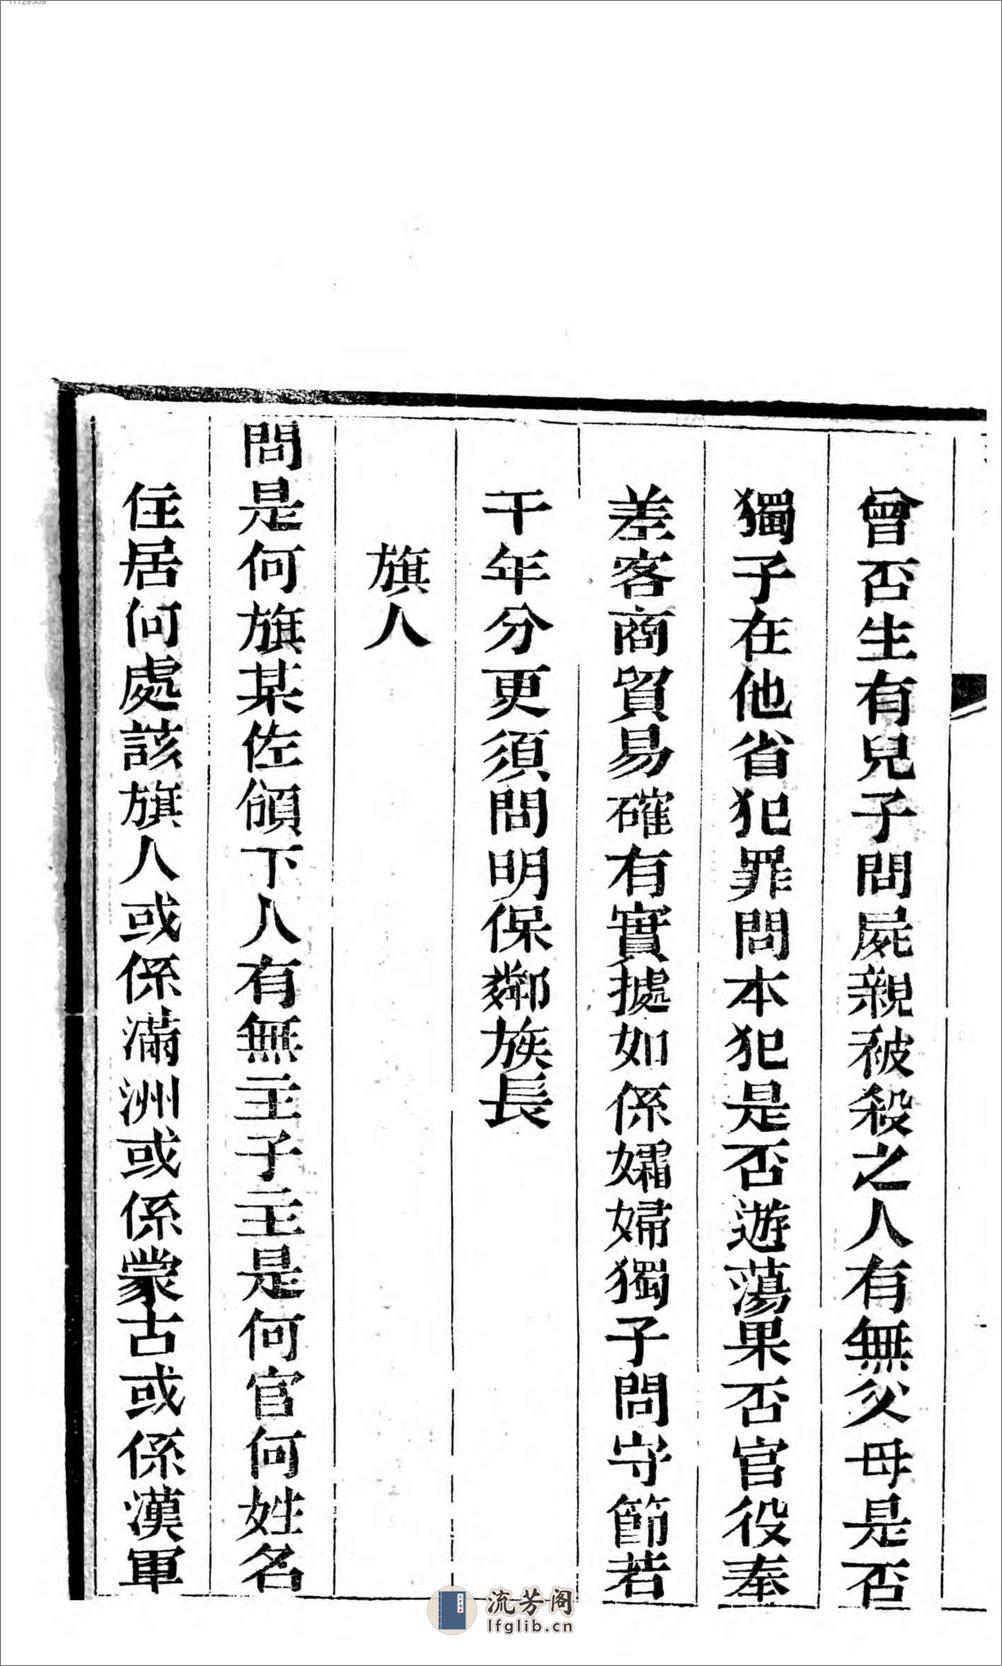 曾否生有兒子問屍親被殺之人有無父母是否
獨子在他省犯罪問本犯是否遊蕩果否官役奉
差客商貿易確有實據如係孀婦獨子問守節若
干年分更須問明保鄰族長
旗人
問是何旗某佐領下人有無主子主是何官何姓名
住居何處該旗人或係滿洲或係蒙古或係漢軍
流芳阁
lfglib.cn